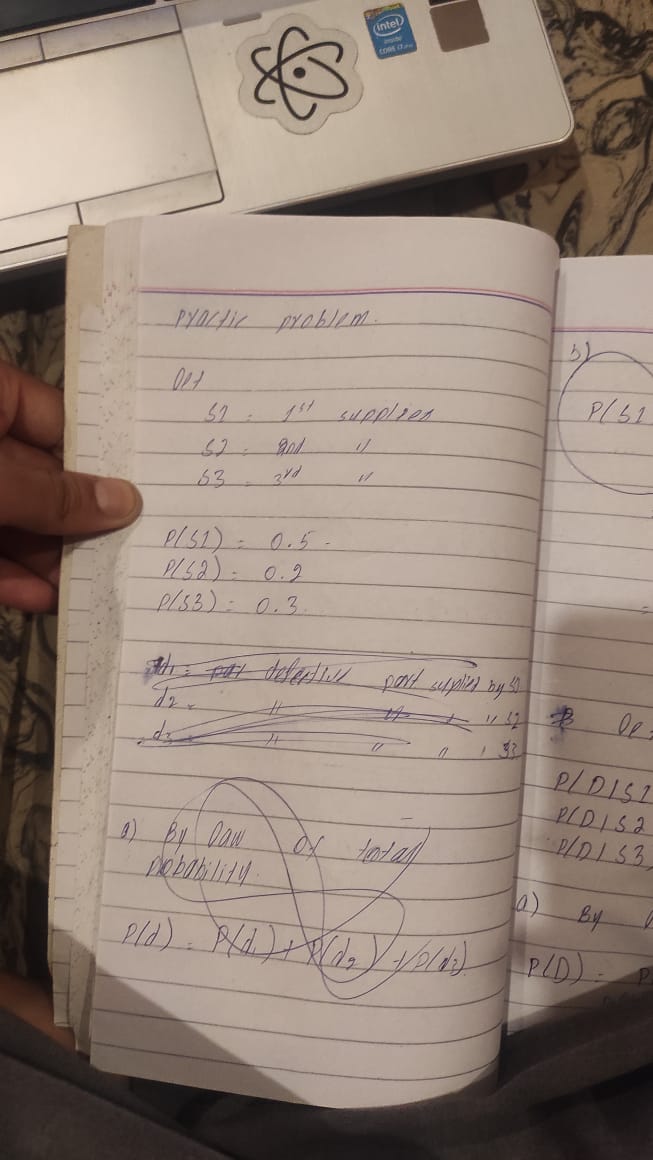 intel
inside
CORE i7
Practic problem.
Det
S1 = 1st supplies
S2 = 2nd "
S3 = 3rd "
P(S1) = 0.5
P(S2) = 0.2
P(S3) = 0.3
d1 = par defective part supplied by S1
d2 = " " " " S2
d3 = " " " " S3
a) By Law of total
probability.
P(d) = P(d1) + P(d2) + P(d3)
b)
P(S1
De
P(D|S1
P(D|S2
P(D|S3
a) By
P(D) = P